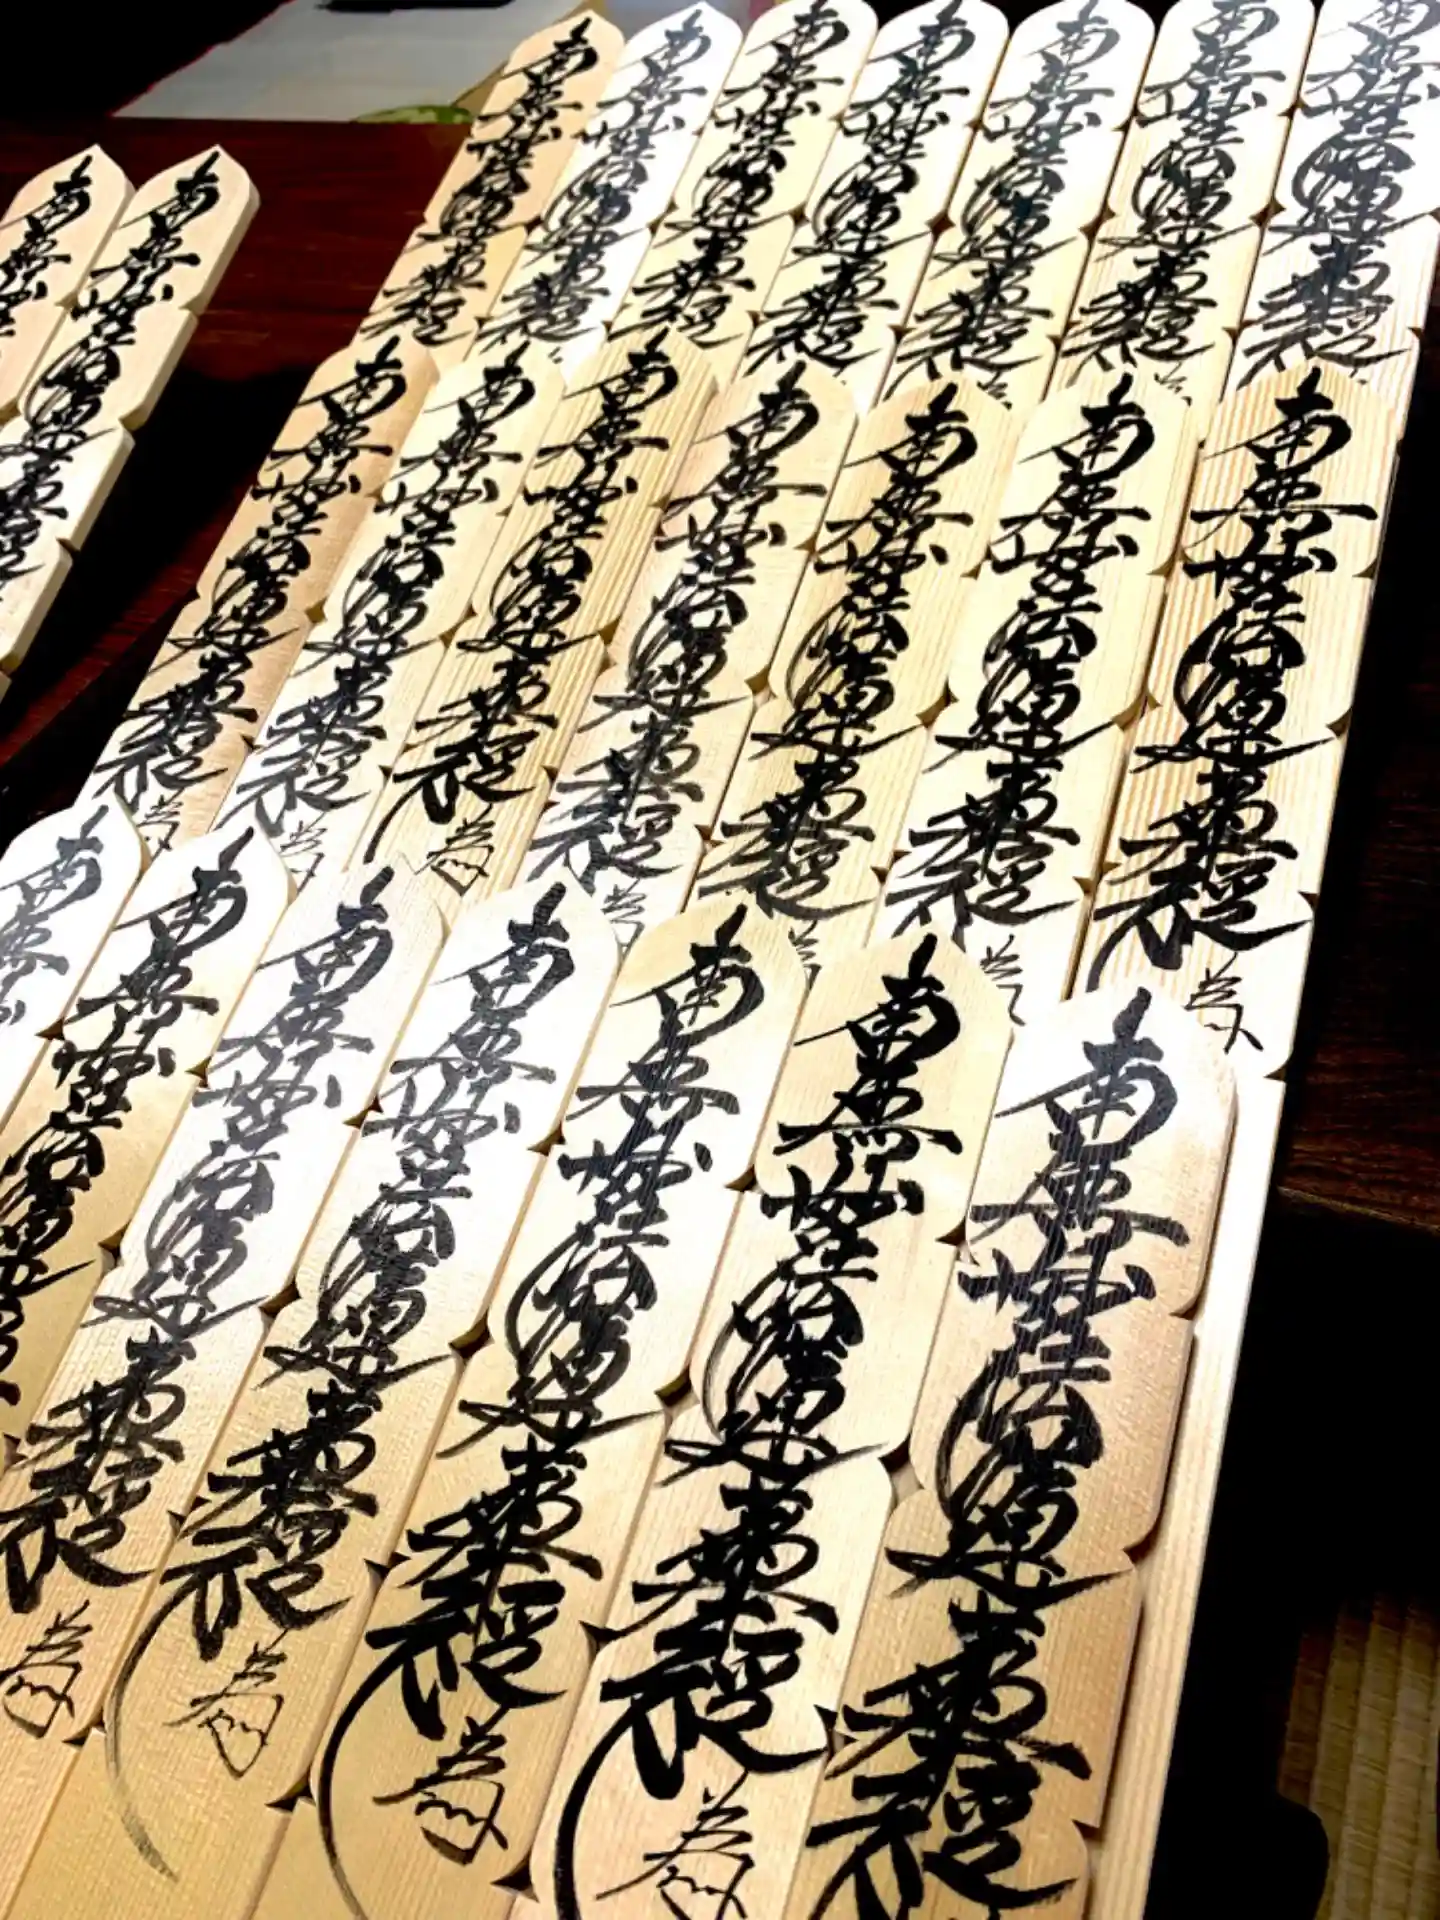 南無妙法蓮華経
南無妙法蓮華経
南無妙法蓮華経
南無妙法蓮華経
南無妙法蓮華経
南無妙法蓮華経
南無妙法蓮華経
南無妙
南無妙法蓮華経
南無妙法蓮華経為
南無妙法蓮華経為
南無妙法蓮華経為
南無妙法蓮華経為
南無妙法蓮華経為
南無妙法蓮華経為
南無妙法蓮華経為
南無妙
南無妙法蓮
南無妙法蓮華経為
南無妙法蓮華経為
南無妙法蓮華経為
南無妙法蓮華経為
南無妙法蓮華経